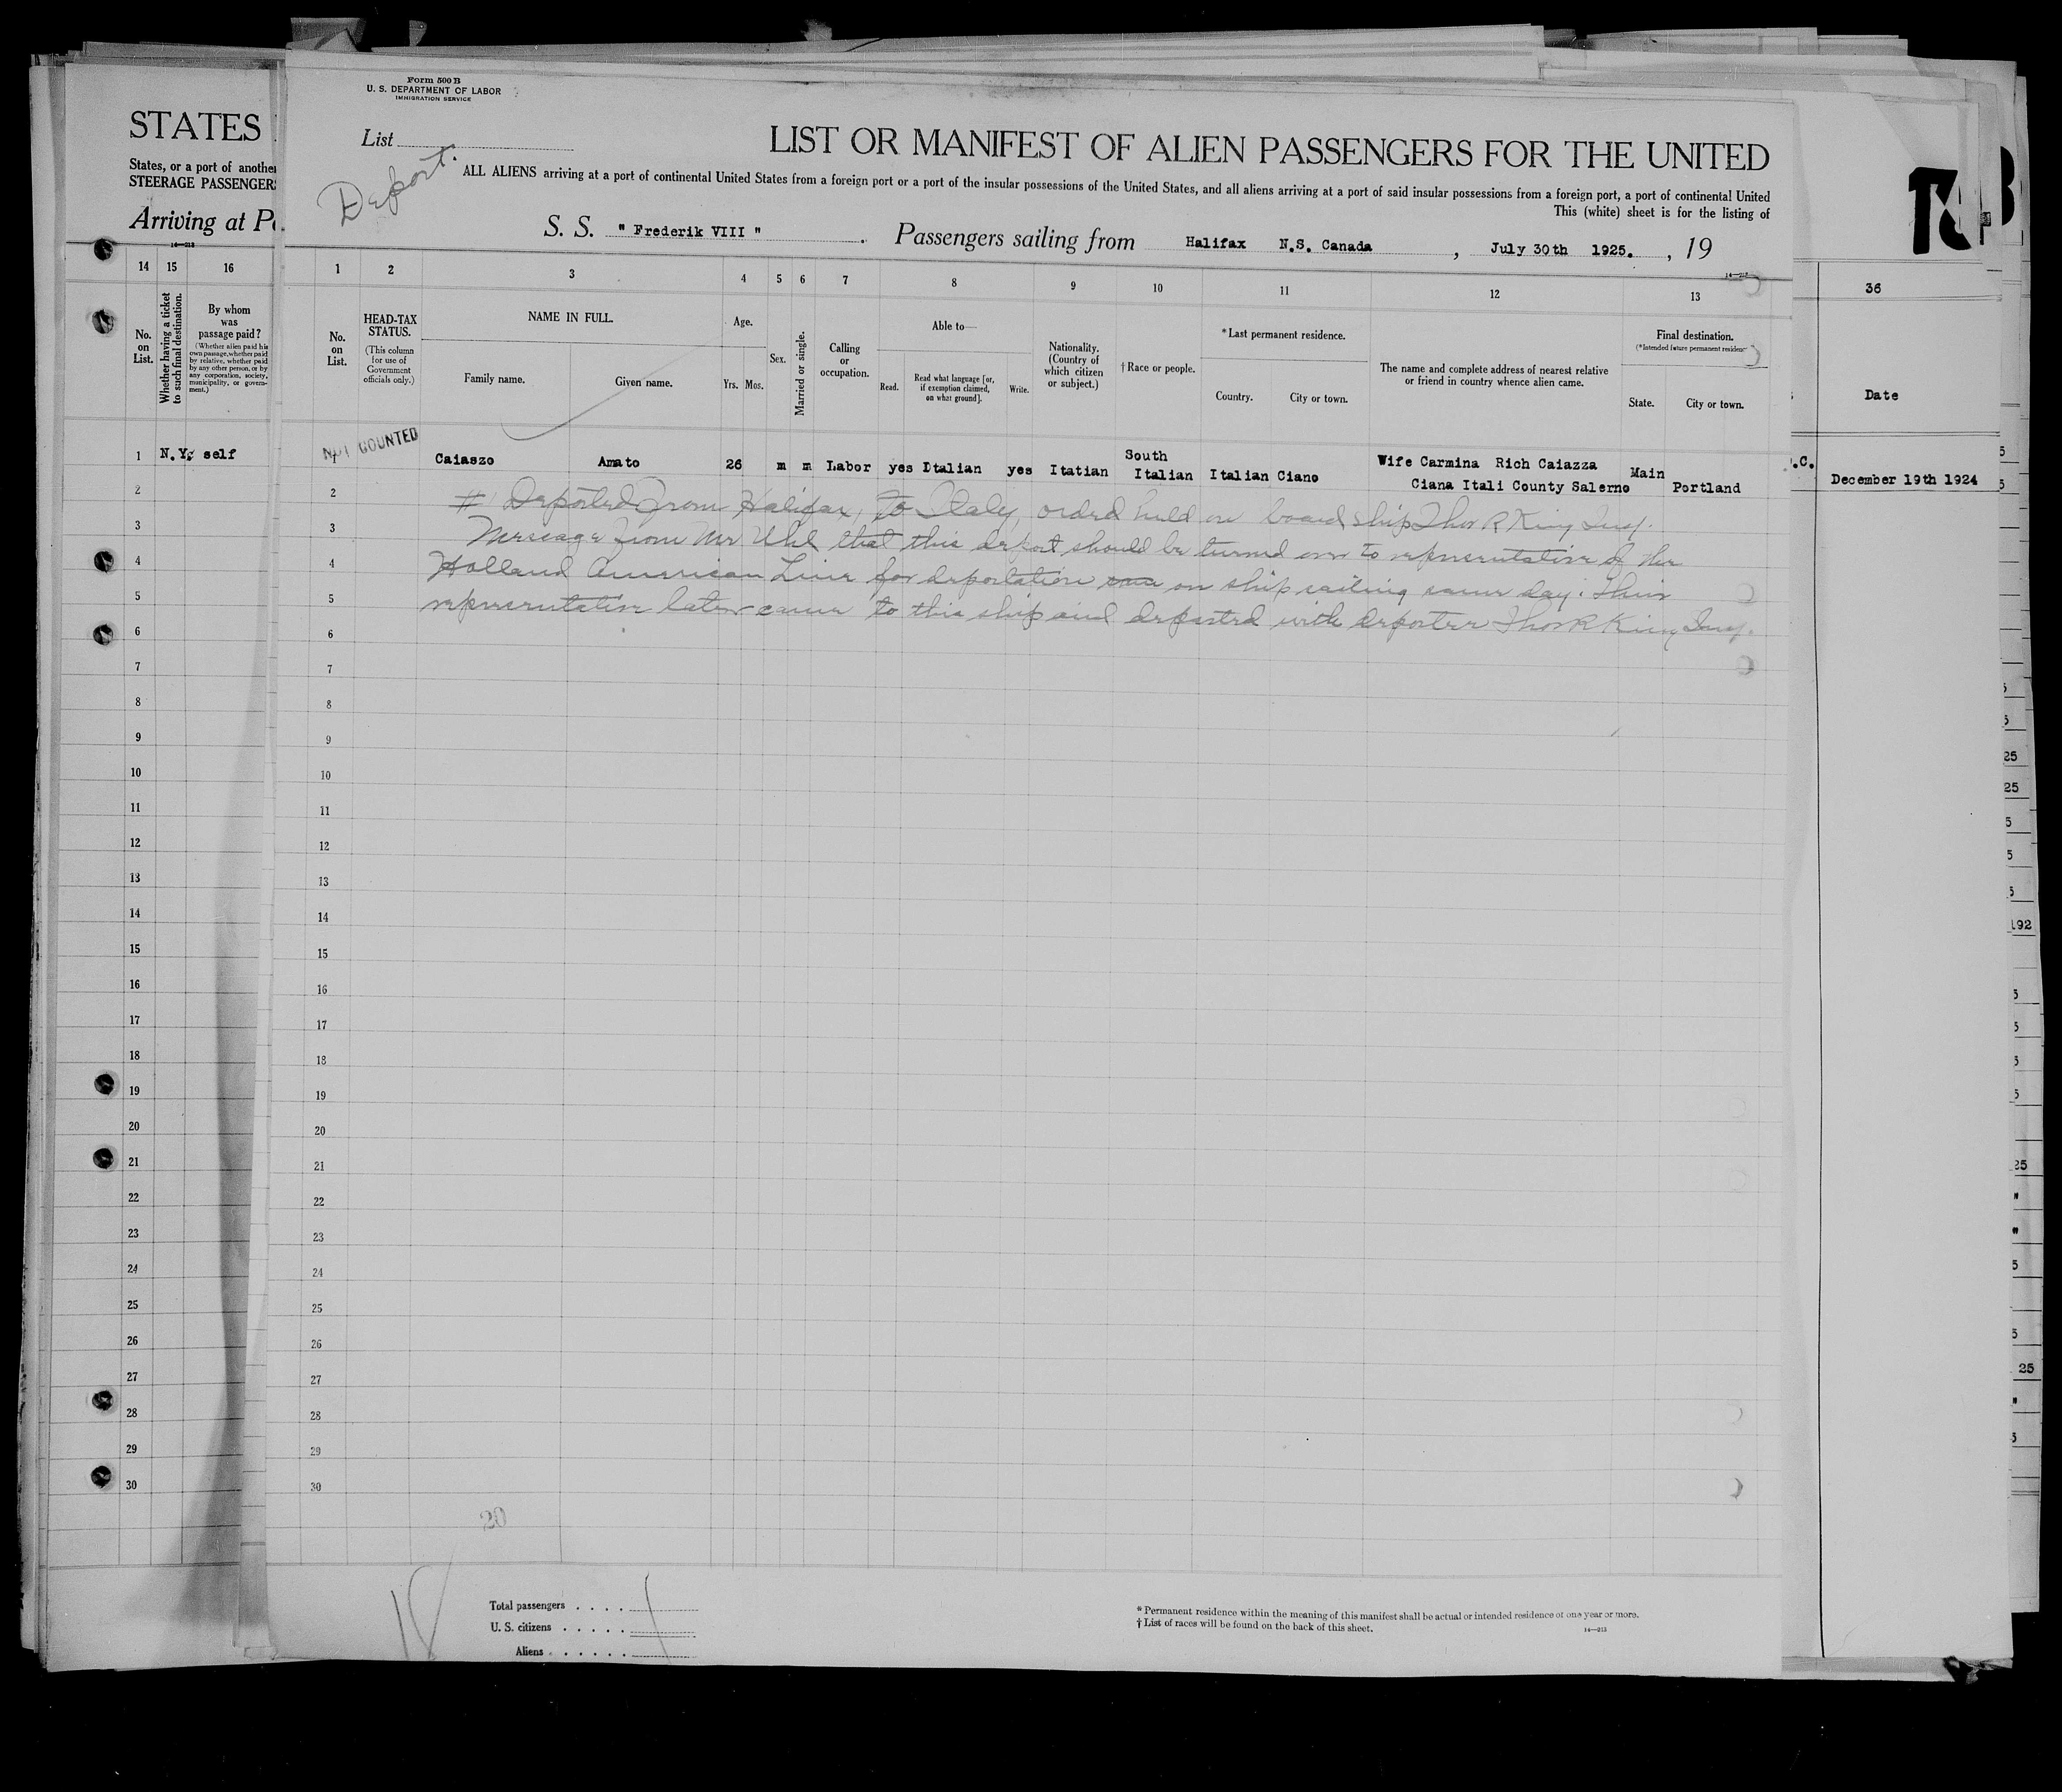 Form 500 B
U. S. DEPARTMENT OF LABOR
IMMIGRATION SERVICE
List
Deport.
LIST OR MANIFEST OF ALIEN PASSENGERS FOR THE UNITED
ALL ALIENS arriving at a port of continental United States from a foreign port or a port of the insular possessions of the United States, and all aliens arriving at a port of said insular possessions from a foreign port, a port of continental United
This (white) sheet is for the listing of
S. S. " Frederik VIII " Passengers sailing from Halifax N.S. Canada , July 30th 1925. , 19
14—213
STATES
States, or a port of another
STEERAGE PASSENGERS
Arriving at Po
14—213
14 15 16
No. on List.
Whether having a ticket to such final destination.
By whom was passage paid?
(Whether alien paid his own passage, whether paid by relative, whether paid by any other person, or by any corporation, society, municipality, or government.)
1 N.Y. self
2
3
4
5
6
7
8
9
10
11
12
13
14
15
16
17
18
19
20
21
22
23
24
25
26
27
28
29
30
1 2 3 4 5 6 7 8 9 10 11 12 13
No. on List.
HEAD-TAX STATUS.
(This column for use of Government officials only.)
NAME IN FULL.
Family name. Given name.
Age.
Yrs. Mos.
Sex.
Married or single.
Calling or occupation.
Able to—
Read. Read what language [or, if exemption claimed, on what ground]. Write.
Nationality. (Country of which citizen or subject.)
†Race or people.
*Last permanent residence.
Country. City or town.
The name and complete address of nearest relative or friend in country whence alien came.
Final destination.
(*Intended future permanent residence)
State. City or town.
NOT COUNTED
1 Caiaszo Amato 26 m m Labor yes Italian yes Itatian South Italian Italian Ciano Wife Carmina Rich Caiazza Ciana Itali County Salerno Main Portland
# Deported From Halifax, To Italy, orded held on board ship Thos R King Insp.
Message from Mr Uhl that this deport should be turned over to representative of the
Holland American Line for deportation on ship sailing same day. This
representative later came to this ship and departed with deportee Thos R King Insp.
2
3
4
5
6
7
8
9
10
11
12
13
14
15
16
17
18
19
20
21
22
23
24
25
26
27
28
29
30
20
18
Total passengers . . . .
U. S. citizens . . . . .
Aliens . . . . . .
* Permanent residence within the meaning of this manifest shall be actual or intended residence of one year or more.
† List of races will be found on the back of this sheet.
14—213
36
Date
.C.
December 19th 1924